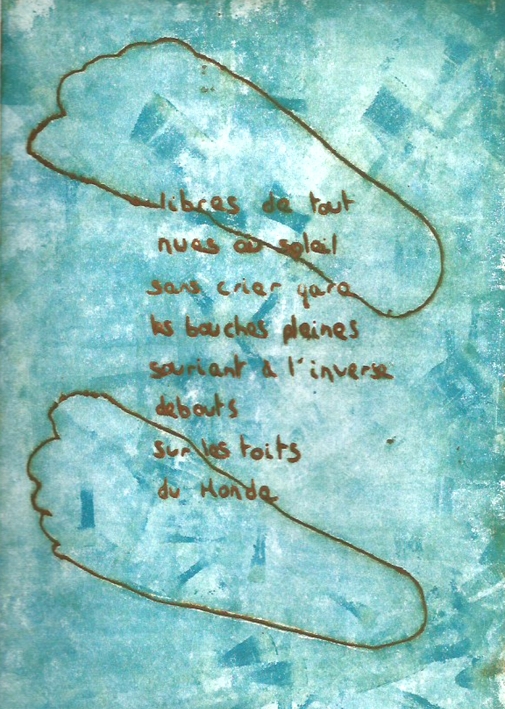 libres de tout
nues au soleil
sans crier gare
les bouches pleines
souriant à l'inverse
debouts
sur les toits
du Monde